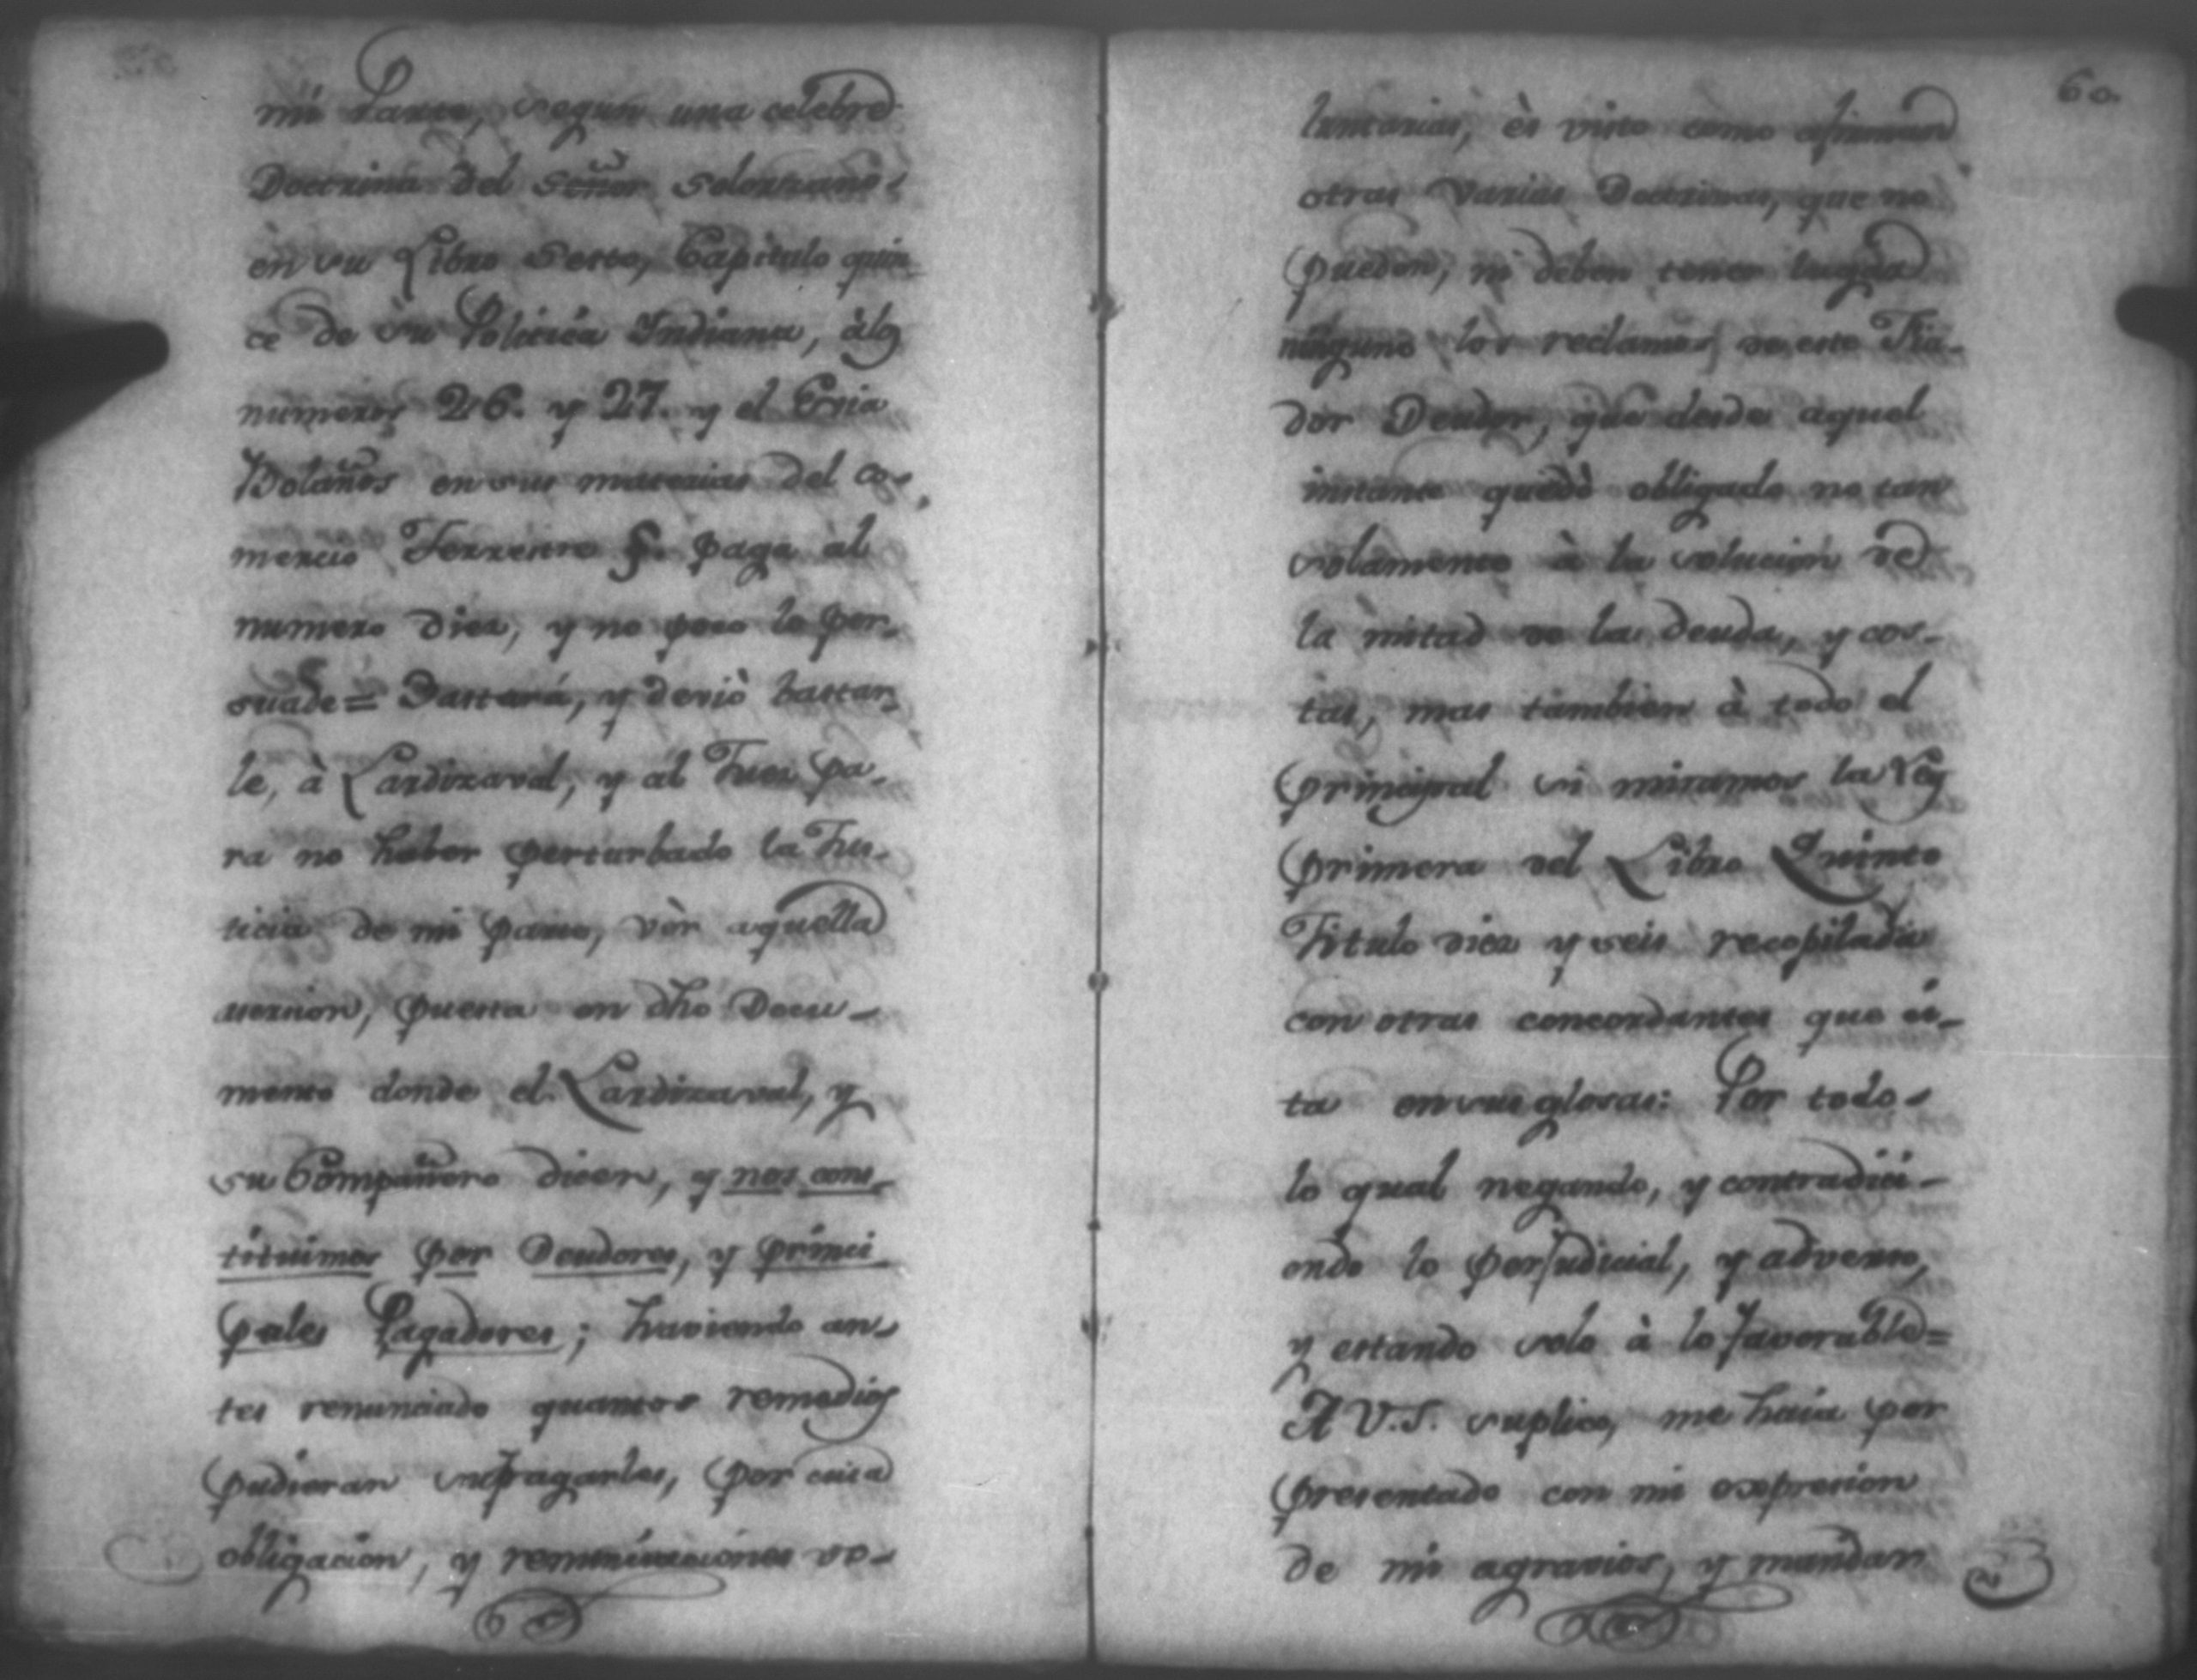 mi Parte, segun una celebre
Doctrina del Señor Solorzano
en su Libro Sesto, Capitulo quin
ce de su Politica Indiana, à los
numeros 26. y 27. y el Curia
Bolaños en sus materias del co-
mercio Terrestre §. paga al
numero diez, y no poco lo per-
suade = Bastará, y deviò bastar-
le, à Lardizaval, y al Juez pa-
ra no haber perturbado la Jus-
ticia de mi parte, vèr aquella
asercion, puesta en dho Docu-
mento donde el Lardizaval, y
su Compañero dicen, y nos cons-
tituimos por Deudores, y princi
pales Pagadores; haviendo an-
tes renunciado quantos remedios
pudieran sufragarles, por cuia
obligacion, y renunciaciones vo-
60.
luntarias, ès visto como afirman
otras varias Doctrinas, que no
pueden, ni deben tener lugar
ninguno los reclamos de este Fia-
dor Deudor, que desde aquel
instante quedò obligado no tan
solamente à la solucion de
la mitad de la deuda, y cos-
tas, mas tambien à todo el
principal si miramos la Ley
primera del Libro Quinto
Titulo diez y seis recopilada
con otras concordantes que ci-
ta en sus glosas: Por todo
lo qual negando, y contradici-
endo lo perjudicial, y adverso,
y estando solo à lo favorable =
A V.S. suplico, me haia por
presentado con mi expresion
de mis agravios, y mandar